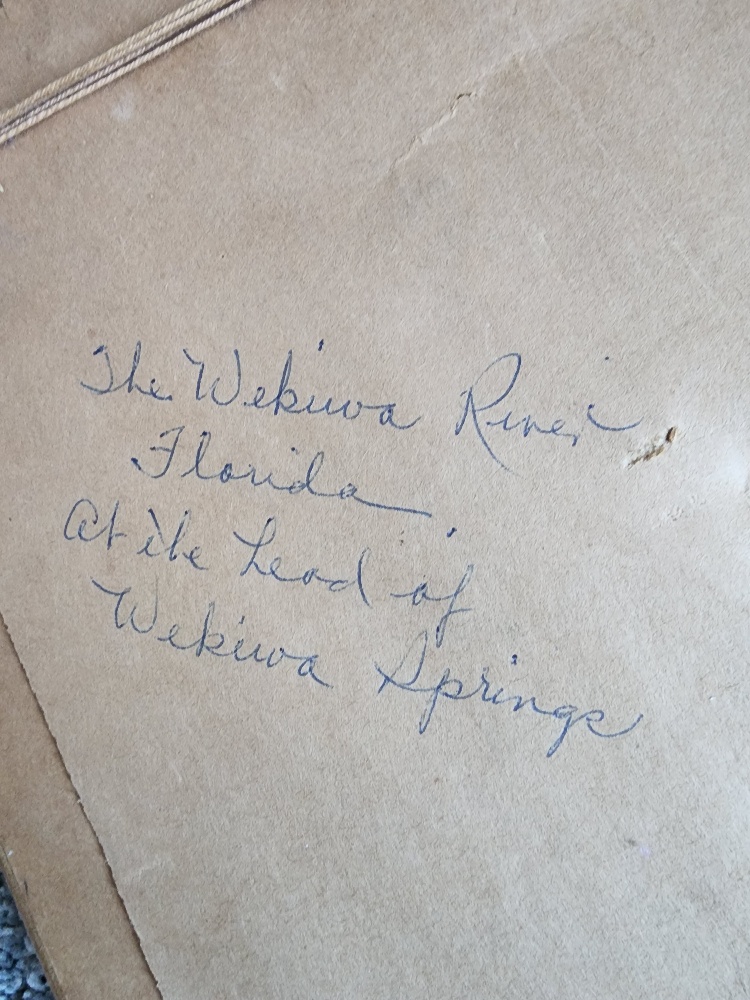 The Wekiwa River
Florida
At the head of
Wekiwa Springs